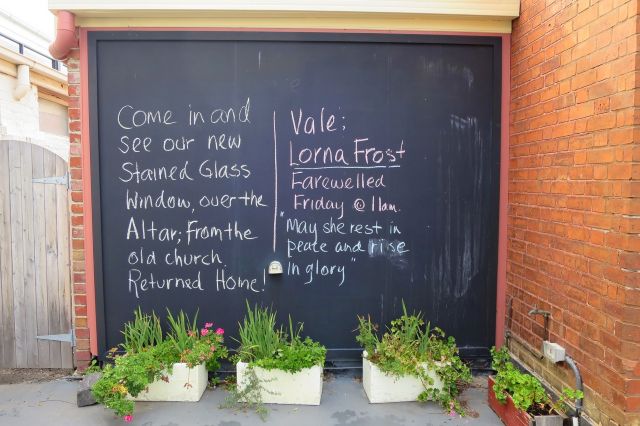 Come in and
see our new
Stained Glass
Window, over the
Altar; from the
old church.
Returned Home!
Vale;
Lorna Frost
Farewelled
Friday @ 11am.
"May she rest in
peace and rise
in glory"